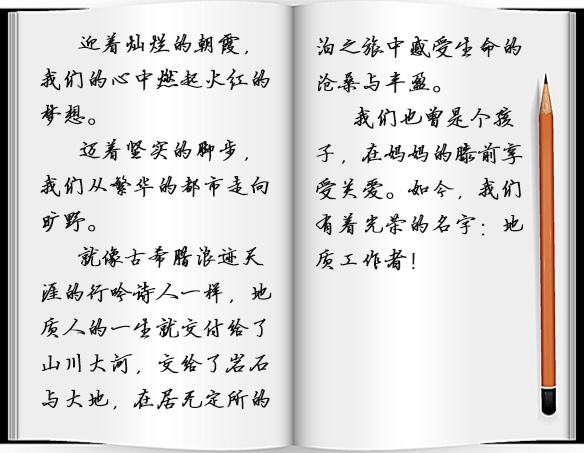 迎着灿烂的朝霞，
我们的心中燃起火红的
梦想。
迈着坚实的脚步，
我们从繁华的都市走向
旷野。
就像古希腊浪迹天
涯的行吟诗人一样，地
质人的一生就交付给了
山川大河，交给了岩石
与大地，在居无定所的
泊之旅中感受生命的
沧桑与丰盈。
我们也曾是个孩
子，在妈妈的膝前享
受关爱。如今，我们
有着光荣的名字：地
质工作者！